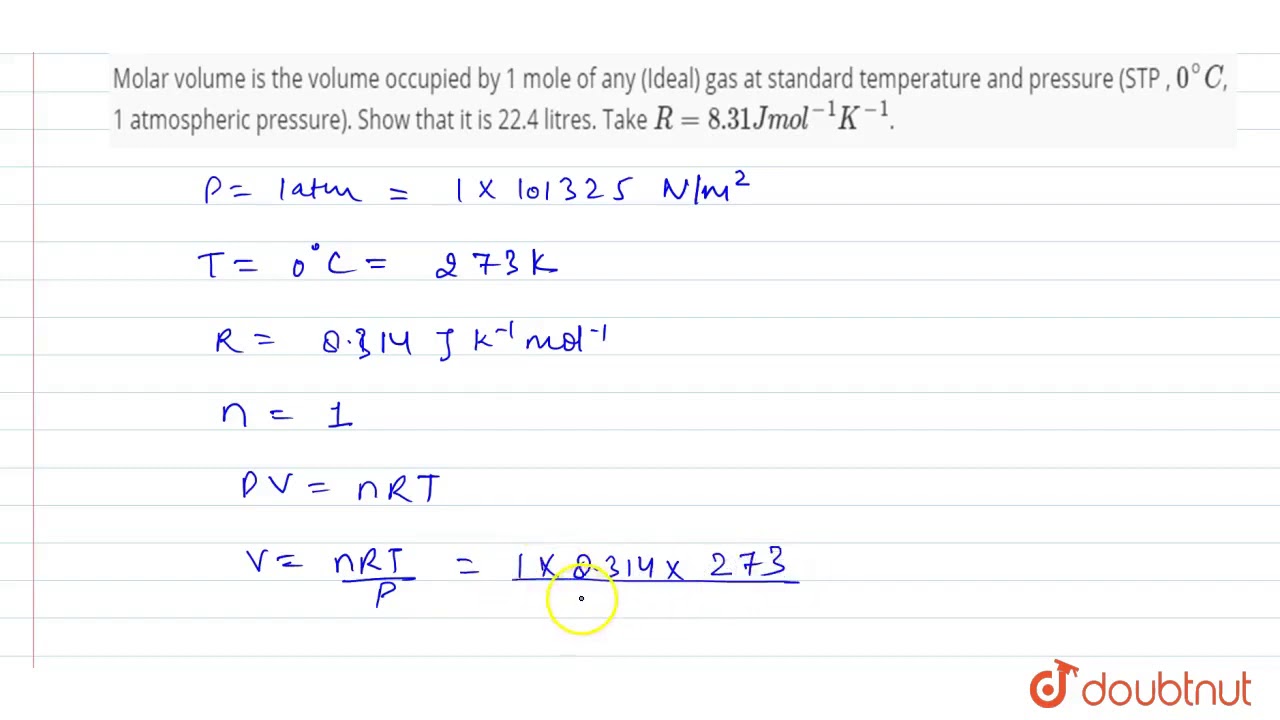 Molar volume is the volume occupied by 1 mole of any (Ideal) gas at standard temperature and pressure (STP , 0°C,
1 atmospheric pressure). Show that it is 22.4 litres. Take R = 8.31Jmol⁻¹K⁻¹.
P = 1atm = 1 × 101325 N/m²
T = 0°C = 273K
R = 8.314 J K⁻¹ mol⁻¹
n = 1
PV = nRT
V = nRT/P = 1 × 8.314 × 273
doubtnut